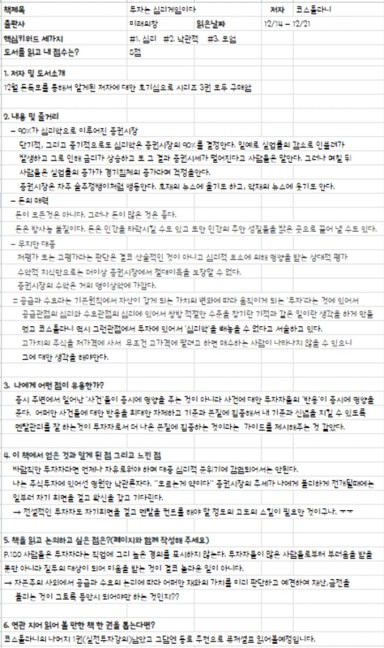 책제목 투자는 심리게임이다 저자 코스톨라니
출판사 미래의창 읽은날짜 12/14 ~ 12/21
핵심키워드 세가지 #1. 심리 #2. 낙관적 #3. 모험
도서를 읽고 내 점수는? 5점
1. 저자 및 도서소개
12월 돈독모를 통해서 알게된 저자에 대한 호기심으로 시리즈 3권 모두 구매함
2. 내용 및 줄거리
- 90%가 심리학으로 이루어진 증권시장
단기적, 그리고 중기적으로도 심리학은 증권시장의 90%를 결정한다. 일예로 실업률의 감소로 인플레가
발생하고 그로 인해 금리가 상승하고 또 그 결과 증권시세가 떨어진다고 사람들은 말한다. 그러나 며칠 뒤
사람들은 실업률의 증가가 경기침체의 증가라며 걱정을한다.
증권시장은 자주 술주정뱅이처럼 행동한다. 호재의 뉴스에 울기도 하고, 악재의 뉴스에 웃기도 한다.
- 돈의 매력
돈이 모든것은 아니다. 그러나 돈이 많은 것은 좋다.
돈은 방사능 물질이다. 돈은 인간을 타락시킬 수도 있고 또한 인간의 주변 성질들을 밝은 곳으로 끌어 낼 수도 있다.
- 무지한 대중
저평가 또는 고평가라는 판단은 결코 산술적인 것이 아니고 심리적 요소에 의해 영향을 받는 상대적 평가
수학적 지식만으로는 더이상 증권시장에서 절대이득을 보장할 수 없다.
증권시장의 수학은 거의 영이상학에 가깝다.
= 공급과 수요라는 기본원칙에서 자산이 갖게 되는 가치의 변화에 따라 움직이게 되는 '투자'라는 것에 있어서
공급관점의 심리와 수요관점의 심리에 있어서 항상 적절한 수준을 찾기란 기적과 같은 일이란 생각을 하게 만들
었고 코스톨라니 역시 그런관점에서 투자에 있어서 '심리학'을 빼놓을 수 없다고 서술하고 있다.
고가치의 주식을 저가격에 사서 무조건 고가격에 팔려고 하면 매수하는 사람이 나타나지 않을 수 있으니
그에 대한 생각을 해야한다.
3. 나에게 어떤 점이 유용한가?
증시 주변에서 일어난 '사건'들이 증시에 영향을 주는 것이 아니라 사건에 대한 투자자들의 '반응'이 증시에 영향을
준다. 어떠한 사건들에 대한 반응을 최대한 자제하고 기준과 본질에 집중해서 내 기준과 신념을 지킬 수 있도록
멘탈관리를 잘 하는것이 투자자로서 더 나은 본질에 집중하는 것이라는 가이드를 제시해주는 것 같았다.
4. 이 책에서 얻은 것과 알게 된 점 그리고 느낀 점
바람직한 투자자라면 언제나 자유로워야 하며 대중 심리적 분위기에 감염되어서는 안된다.
나는 주식투자에 있어선 영원한 낙관론자다. "오르는게 약이다" 증권시장의 추세가 나에게 불리하게 전개될때에는
일부러 자기 최면을 걸고 확신을 갖고 기다린다.
→ 전설적인 투자자도 자기최면을 걸고 멘탈을 컨트롤 해야 할 정도의 고도의 스킬이 필요한 것이구나. ㅜㅜ
5. 책을 읽고 논의하고 싶은 점은?(페이지와 함께 작성해 주세요)
P.100 사람들은 투자자라는 직업에 그리 높은 경의를 표시하지 않는다. 투자자들이 많은 사람들로부터 부러움을 받을
뿐만 아니라 질투의 대상이 되어 미움을 받는 것이 결코 놀라운 일이 아니다.
→ 자본주의 사회에서 공급과 수요의 논리에 따라 어떠한 재화의 가치를 미리 판단하고 예견하여 재산,금전을
불리는 것이 그토록 등한시 되어야만 하는 것인지??
6. 연관 지어 읽어 볼 만한 책 한 권을 뽑는다면?
코스톨라니의 나머지 1권(실전투자강의)남았고 그담엔 동료 추천으로 퓨처셀프 읽어볼예정입니다.